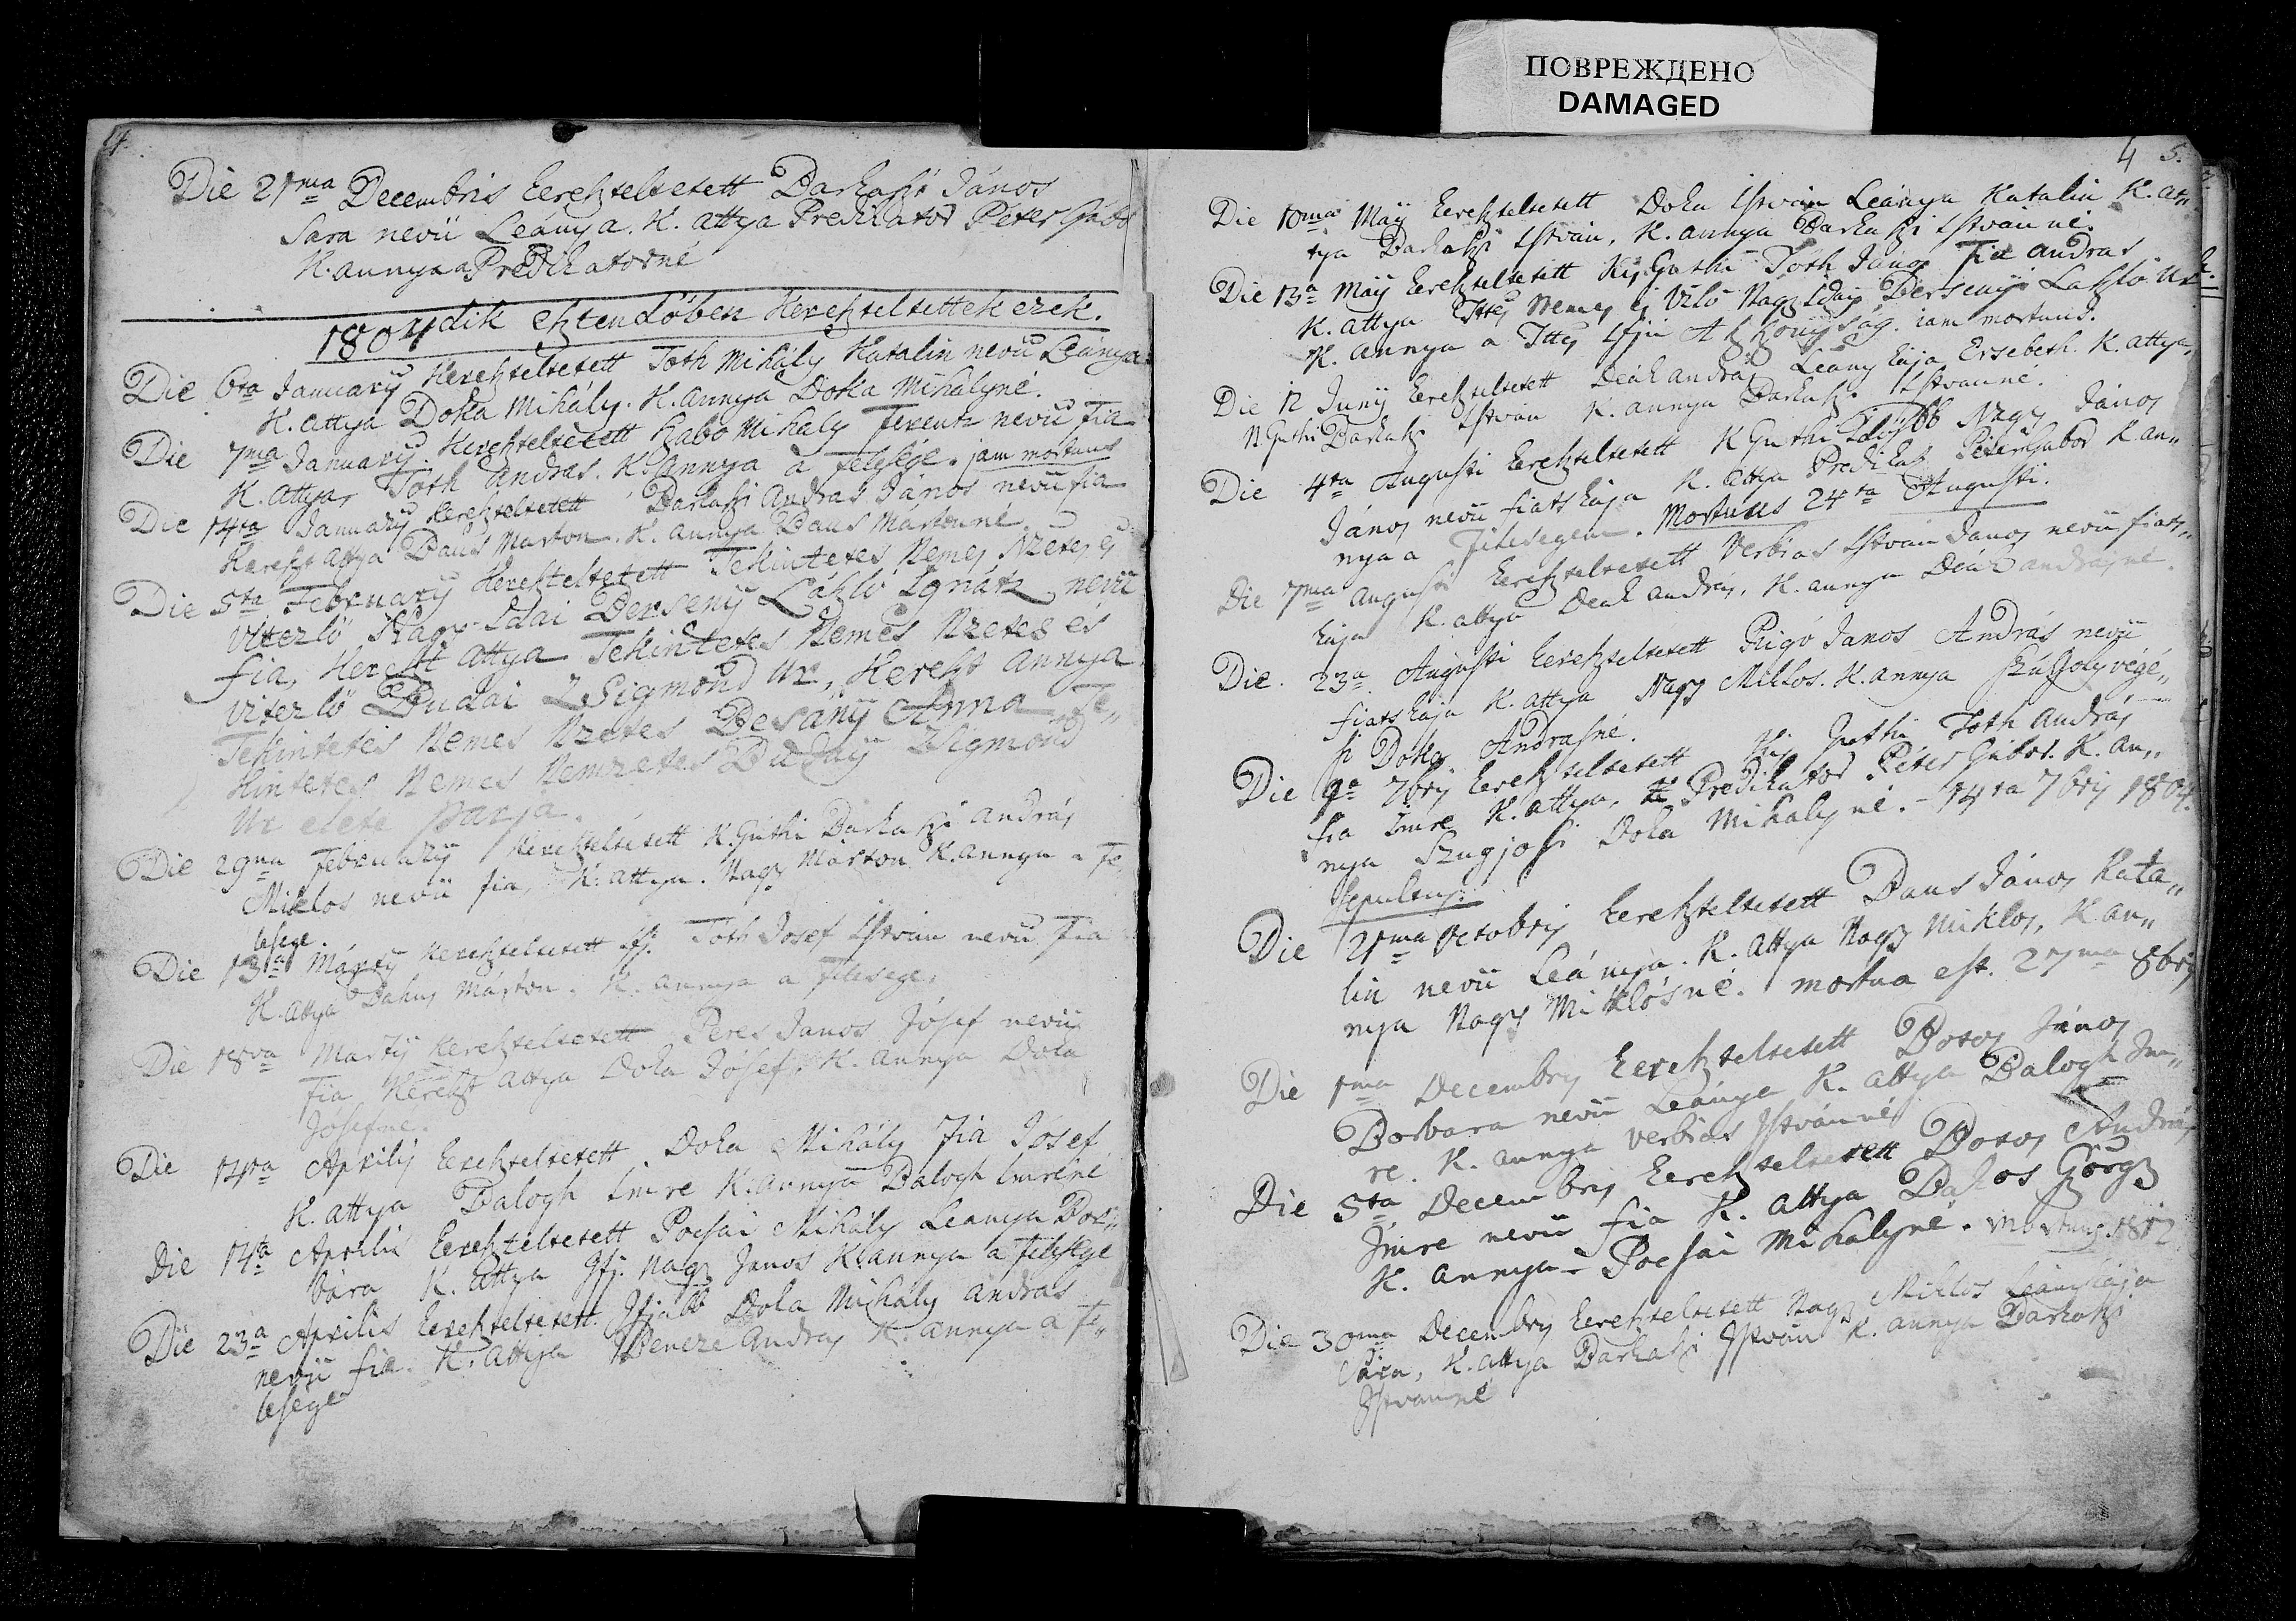 ПОВРЕЖДЕНО
DAMAGED
4.
Die 21ma Decembris kereszteltetett Darkaszi János
Sara nevü Leánya. K. attya Predikator Péter Gábo
K. annya a Predikatorné
1804dik esztendőben kereszteltettek ezek.
Die 6ta Januarÿ kereszteltetett Toth Mihály Katalin nevü Leánya
K. attya Doka Mihály. K. annya Doka Mihályné.
Die 7ma Januarÿ kereszteltetett Szabo Mihaly Ferentz nevü Fia
K. attya, Toth Andras. K. annya a Felesége. jam mortuus
Die 14ta Januarÿ kereszteltetett Darkaszi Andras János nevü fia
Kereszt attya Daus Marton. K. annya Daus Mártonné.
Die 5ta Februarÿ kereszteltetett Tekintetes Nemes Nzetes és
Vitezlö Nagy Idai Dersenÿ László Ignátz nevü
fia, Kereszt attya Tekintetes Nemes Nzetes és
Vitezlö Budai Zsigmond Ur, Kereszt annya
Tekintetes Nemes Nzetes Desánÿ Anna Te,,
kintetes Nemes Nemzetes Zsigmond
Ur elete parja.
Die 29na Februarÿ kereszteltetett K. Guthi Darkaszi András
Miklos nevü fia, K. attya. Nagy Márton K. annya a Fe,
lesege.
Die 13a Martÿ kereszteltetett Ifj. Toth Josef Istvan nevü Fia
K. attya Dahus Márton. K. annya a Felesege.
Die 18va Martÿ kereszteltetett Peres Janos Jósef nevü
Fia Kereszt attya Doka Jósef. K. annya Doka
Jósefné.
Die 14ta Aprilÿ kereszteltetett Doka Mihály Fia Josef
K. attya Balogh Imre K. annya Balogh Imréné
Die 14ta Aprilis kereszteltetett Pocsai Mihály Leanya Bor,,
bára K. attya Ifj. Nagy Janos K. annya a Felesége
Die 23a Aprilis kereszteltetett Ifjabb Doka Mihály András
nevü fia. K. attya Veneze András K. annya a Fe,,
lesége
4 5.
Die 10ma Maÿ kereszteltetett Doka Istvan Leánya Katalin K. at,,
tya Darkaszi Istvan, K. annya Darkaszi Istvanné.
Die 13a Maÿ kereszteltetett Kis Guthi Toth János Fia Andras
K. attya Ttts Nemes és Vzlö Nagy Idai Dersenÿi László Ur
K. annya a Ttts Ifju Aszszonyság. iam mortuus.
Die 12 Junÿ kereszteltetett Deák András Leánykája Ersebeth. K. attya,
N Guthi Darkaszi Istvan K. annya Darkaszi Istvanné.
Die 4ta Augusti kereszteltetett K Guthi Idösbb Nagy János
János nevü fiatskája K. attya Predikat. Péter Gabor K an,,
nya a Felesegem. Mortuus 24ta Augusti.
Die 7ma Augusti kereszteltetett Verbias Istvan Janos nevü fiats,,
kaja K. attya Deak András, K. annya Deák Andrásné.
Die. 23a Augusti kereszteltetett Pügö Janos András nevü
fiatskája K. attya Nagy Miklos. K. annya
si Doka Andrasné.
Die 9a 7bris kereszteltetett Kis Guthi Toth András
fia Imre K. attya, Predikator Péter Gabor. K. an,,
nya Doka Mihályné. - 14ta 7bris 1804.
Sepultus.
Die 21ma Octobris kereszteltetett Daus János Kata,,
lin nevü Leánya. K. attya Nagy Miklos, K. an,,
nya Nagy Miklósné. mortua est. 27ma 8bris
Die 1ma Decembris kereszteltetett Botos János
Borbara nevü Leánya K. attya Balogh Im,,
re. K. annya Verbias Istvánné
Die 5ta Decembris kereszteltetett Botos András
Imre nevü fia K. attya Görgy
K. annya Pocsai Mihályné. mortuus. 1812
Die 30ma Decembris kereszteltetett Nagy Miklos Leánykája
Sára, K. attya Darkaszi Istvan K. annya Darkaszi
Istvanné